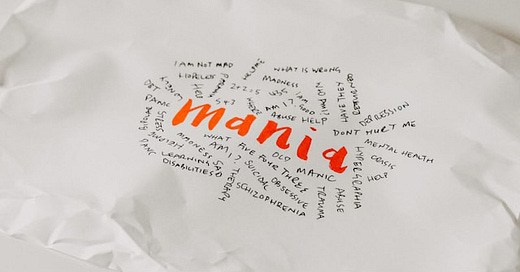 I AM NOT MAD
WHAT IS WRONG
HOPELESS
MADNESS
DEPRESSION
PANIC
543
AM I ? GOOD
ABUSE HELP
DONT HURT ME
mania
STRESS
BIPOLAR
WHAT FIVE FOUR THREE
MENTAL HEALTH
AM I ?
OLD
MANIC
CRISIS
HELP
PANIC
LEARNING
DISABILITIES
SUICIDAL
OBSESSIVE
SCHIZOPHRENIA
THERAPY
TRAUMA
ABUSE
HYPERGRAPHIA